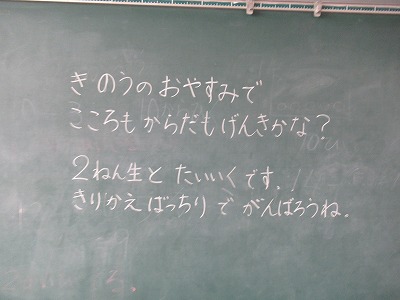 きのうのおやすみで
こころもからだもげんきかな?
2ねん生とたいいくです.
きりかえばっちりでがんばろうね.